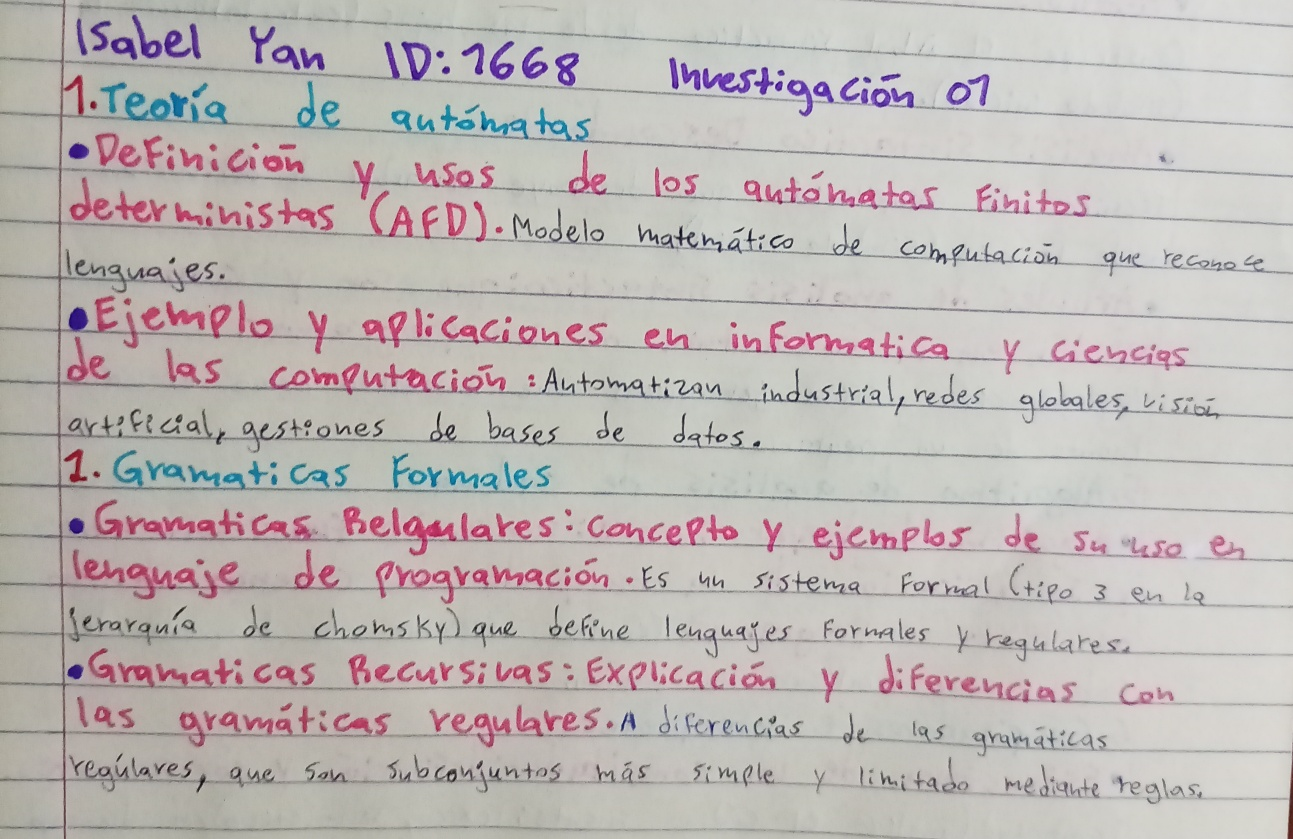 Isabel Yan ID: 1668 Investigación 01
1. Teoría de autómatas
• Definición y usos de los autómatas Finitos
deterministas (AFD). Modelo matemático de computación que reconoce
lenguajes.
• Ejemplo y aplicaciones en informatica y ciencias
de las computación: Automatizan industrial, redes globales, visión
artificial, gestiones de bases de datos.
1. Gramaticas Formales
• Gramaticas Relgulares: concepto y ejemplos de su uso en
lenguaje de programación. Es un sistema Formal (tipo 3 en la
jerarquía de chomsky) que define lenguajes Formales y regulares.
• Gramaticas Recursivas: Explicación y diferencias con
las gramáticas regulares. A diferencias de las gramáticas
regúlares, que son subconjuntos más simple y limitado mediante reglas.